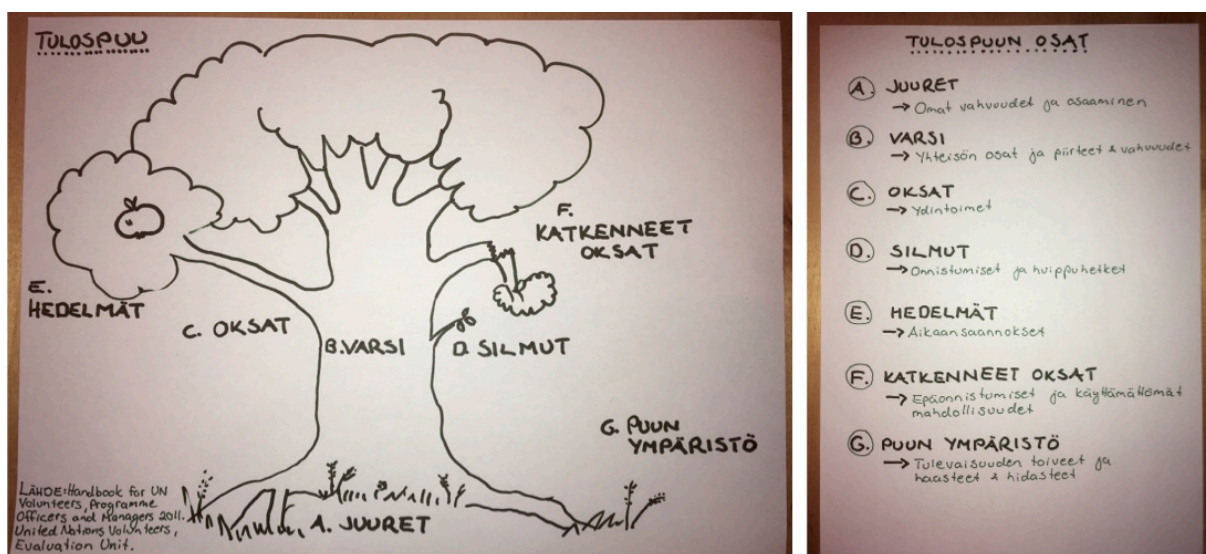 TULOSPUU
F.
KATKENNEET
OKSAT
E.
HEDELMÄT
C. OKSAT
B. VARSI
D. SILMUT
G. PUUN
YMPÄRISTÖ
A. JUURET
LÄHDE: Handbook for UN
Volunteers, Programme
Officers and Managers 2011.
United Nations Volunteers,
Evaluation Unit.
TULOSPUUN OSAT
A. JUURET
→ Omat vahvuudet ja osaaminen
B. VARSI
→ Yhteisön osat ja piirteet & vahvuudet
C. OKSAT
→ Ydintoimet
D. SILMUT
→ Onnistumiset ja huippuhetket
E. HEDELMÄT
→ Aikaansaannokset
F. KATKENNEET OKSAT
→ Epäonnistumiset ja käyttämättömät
mahdollisuudet
G. PUUN YMPÄRISTÖ
→ Tulevaisuuden toiveet ja
haasteet & hidasteet